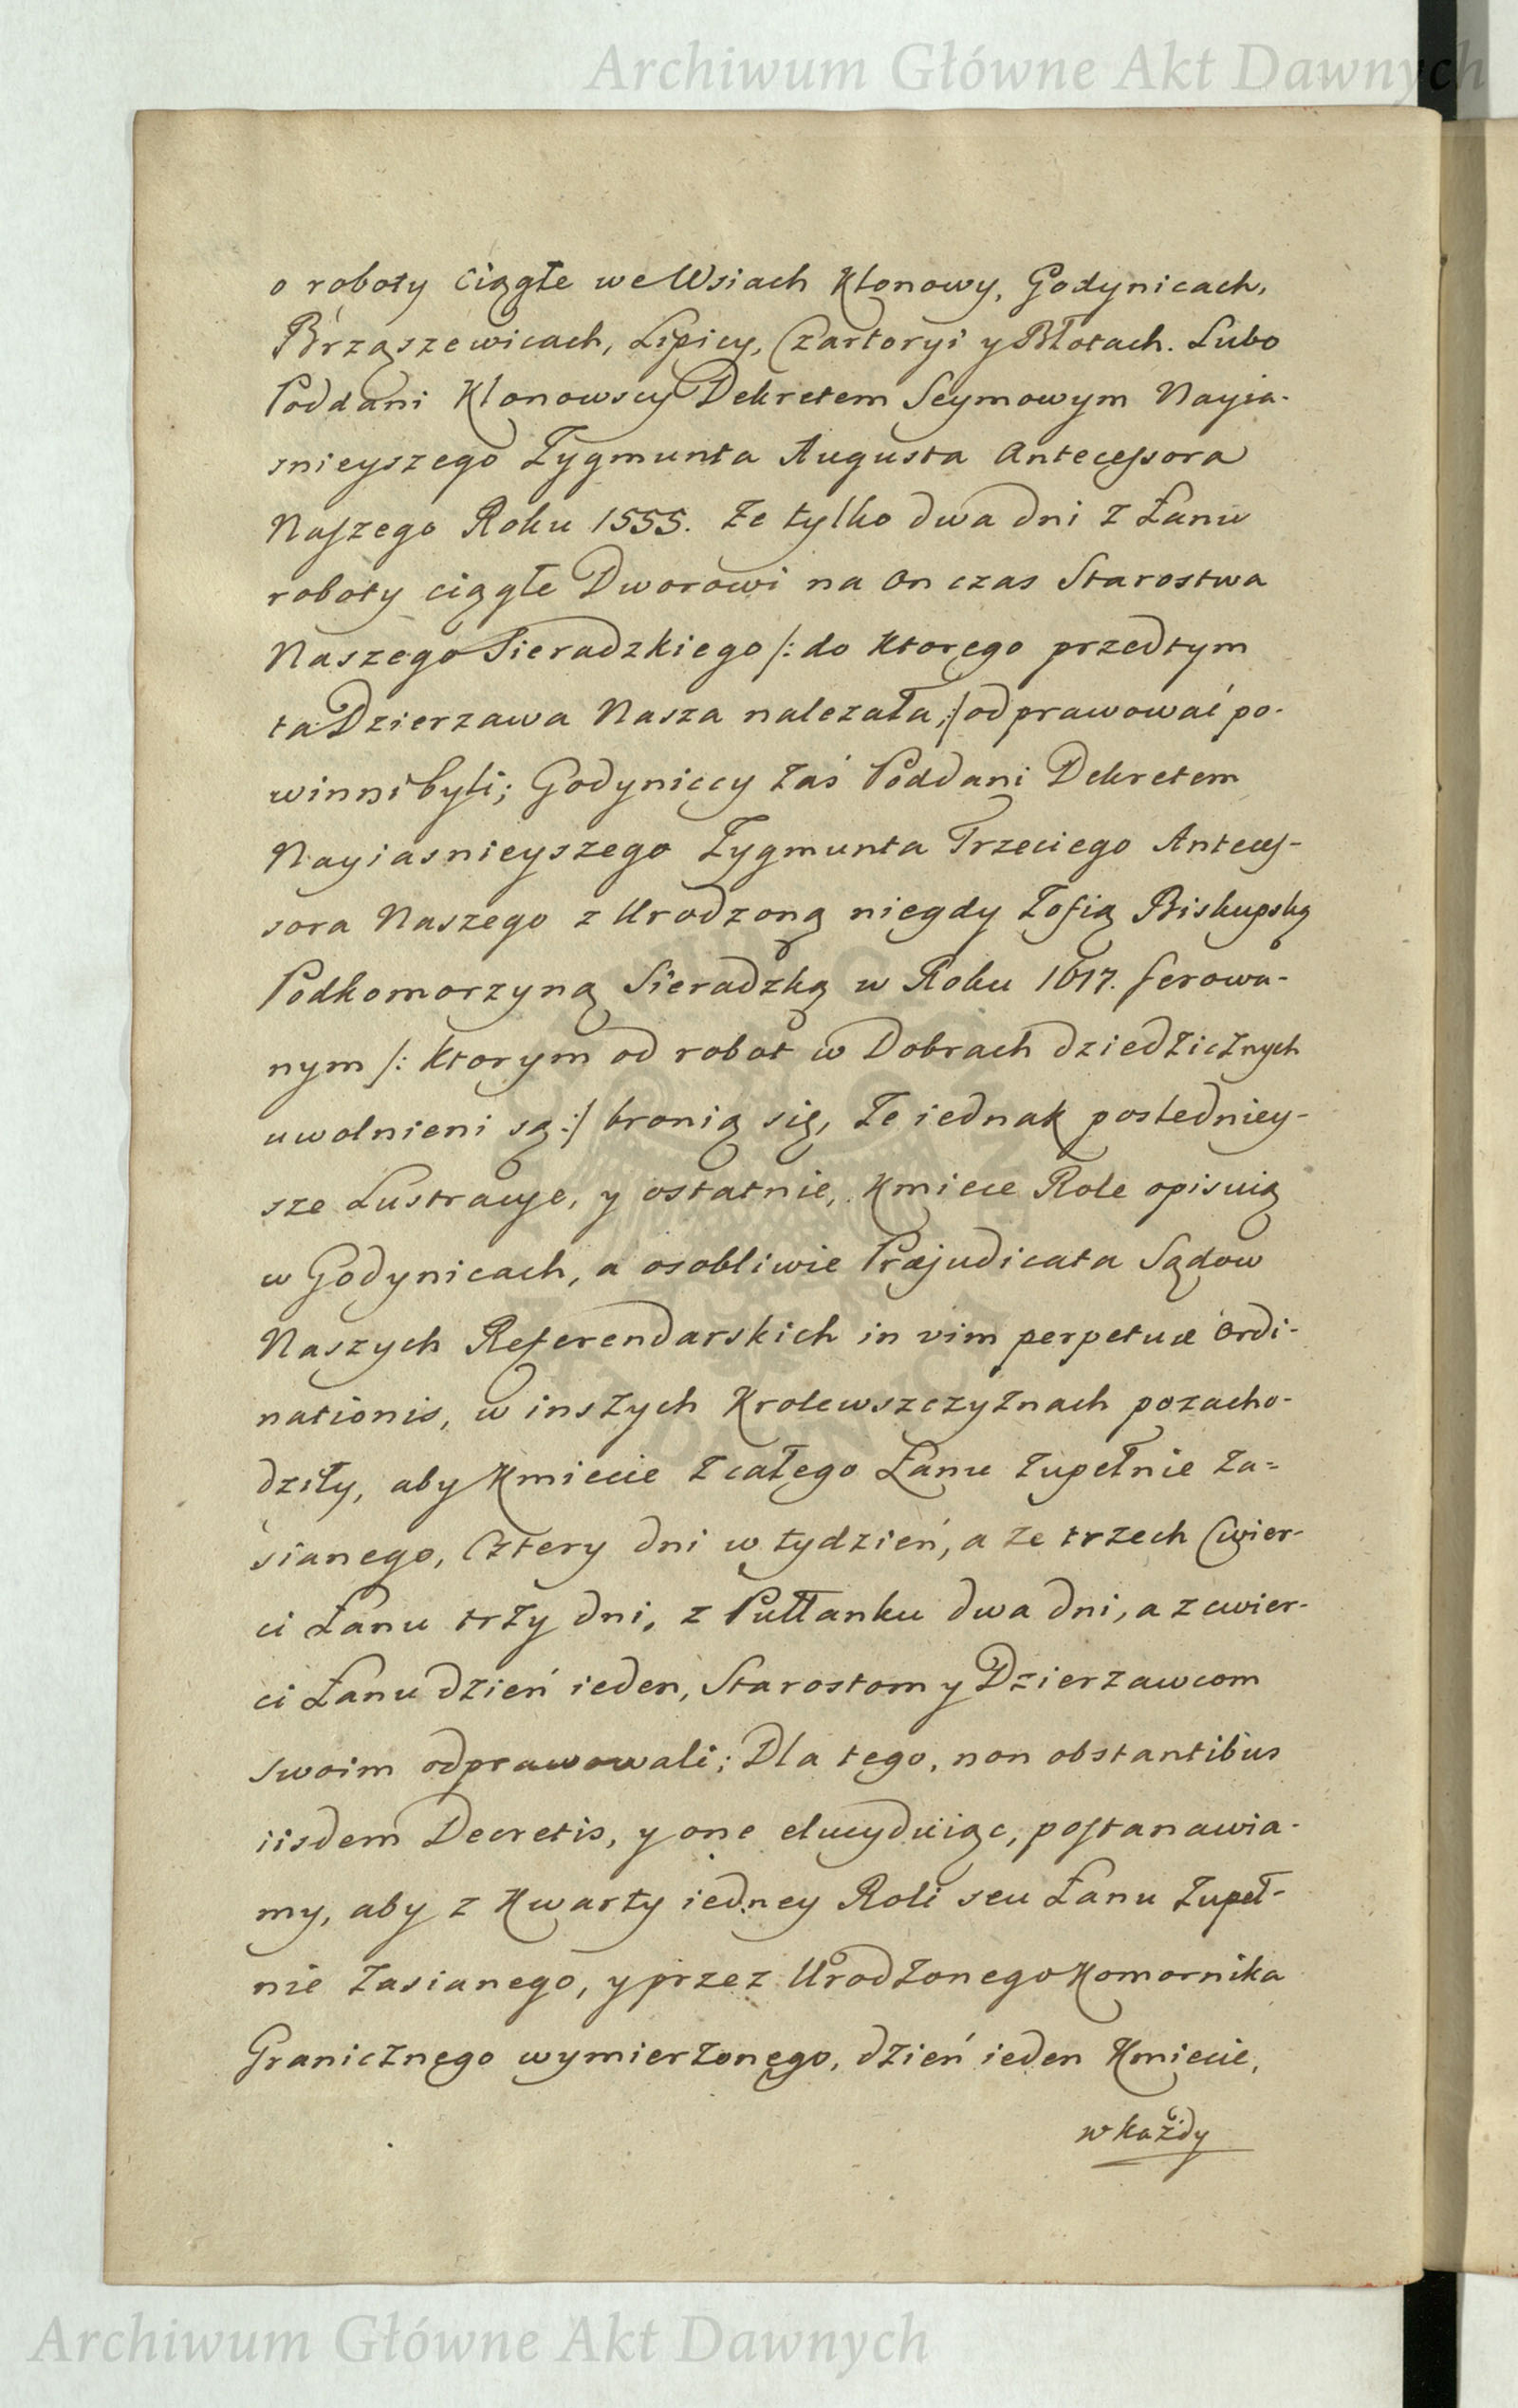 Archiwum Główne Akt Dawnych
o roboty Ciągłe we Wsiach Klonowy, Godynicach,
Brząszewicach, Lipicy, Czartoryi y Błotach. Lubo
Poddani Klonowscy Dekretem Seymowym Nayia-
snieyszego Zygmunta Augusta Antecessora
Naszego Roku 1555. Ze tylko dwa dni z Łanu
roboty ciągłe Dworowi na on czas Starostwa
Naszego Sieradzkiego /: do ktorego przedtym
ta Dzierzawa Nasza nalezała, :/ odprawować po-
winni byli; Godyniccy Zaś Poddani Dekretem
Nayiasnieyszego Zygmunta Trzeciego Anteces-
sora Naszego z Urodzoną niegdy Zofią Biskupską
Podkomorzyną Sieradzką w Roku 1617. ferowa-
nym /: ktorym od robot w Dobrach dziedzicznych
uwolnieni są :/ bronią się, Ze iednak posledniey-
sze Lustracye, y ostatnie, Kmiece Role opisuią
w Godynicach, a osobliwie Præjudicata Sądow
Naszych Referendarskich in vim perpetuæ Ordi-
nationis, w inszych Krolewszczyznach pozacho-
dziły, aby Kmiecie z całego Łanu zupełnie za=
sianego, Cztery dni w tydzień, a ze trzech Cwier-
ci Łanu trzy dni, z Pułłanku dwa dni, a z cwier-
ci Łanu dzień ieden, Starostom y Dzierzawcom
swoim odprawowali; Dla tego, non obstantibus
iisdem Decretis, y one elucyduiąc, postanawia-
my, aby z Kwarty iedney Roli seu Łanu Zupeł-
nie Zasianego, y przez Urodzonego Komornika
Granicznego wymierzonego, dzień ieden Kmiecie,
w każdy
Archiwum Główne Akt Dawnych